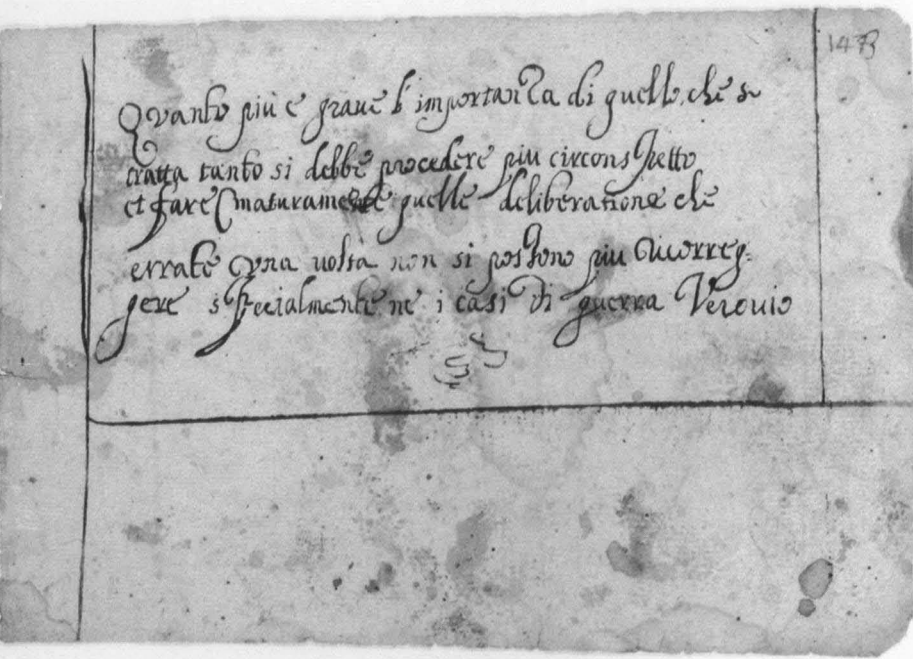 1473
Quanto più e graue l'importanza di quello, che si
tratta tanto si debbe procedere piu circonspetto
et fare maturamente quelle deliberatione che
errate una uolta non si possono piu ricorreg=
gere specialmente ne i casi di guerra Verouio